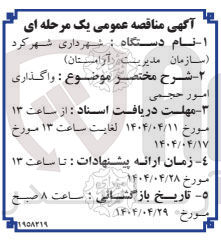 آگهی مناقصه عمومی یک مرحله ای
۱-نـام دسـتگاه : شـهرداری شهرکرد
(سازمان مدیریت آرامستان)
۲-شـرح مختصـر موضـوع : واگـذاری
امور حجـمی
۳-مهلـت دریافـت اسـناد : از ساعت ۱۳
مورخ ۱۴۰۴/۰۴/۱۱ لغایت ساعت ۱۳ مورخ
۱۴۰۴/۰۴/۱۷
۴- زمـان ارائـه پیشـنهادات : تا ساعت ۱۳
مـورخ ۱۴۰۴/۰۴/۲۸
۵- تاریـخ بازگشـایی : ساعت ۸ صبـح
مـورخ ۱۴۰۴/۰۴/۲۹
۱۹۵۸۲۱۹